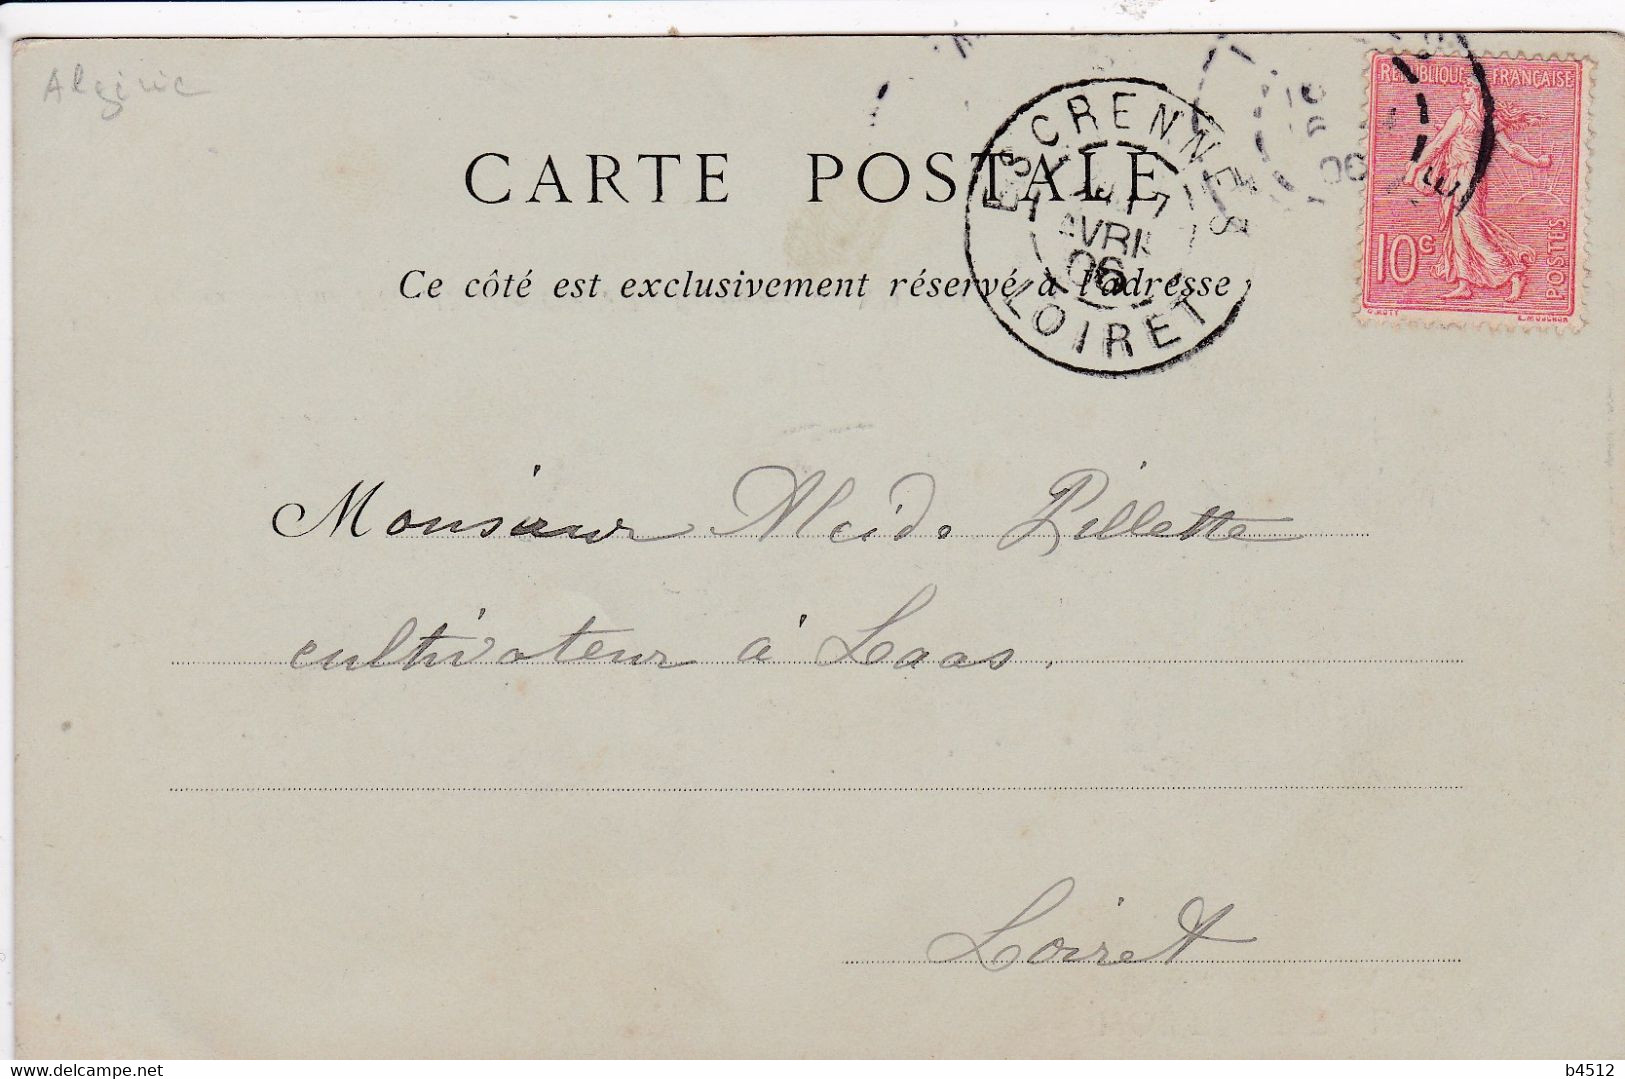 Algérie
RÉPUBLIQUE FRANÇAISE
10c
POSTES
O. ROTY
L. MOUCHON
ESCRENNES
17
AVRIL
06
LOIRET
06
CARTE POSTALE
Ce côté est exclusivement réservé à l'adresse
Monsieur Alcide Pillette
cultivateur à Laas.
Loiret
www.delcampe.net
b4512